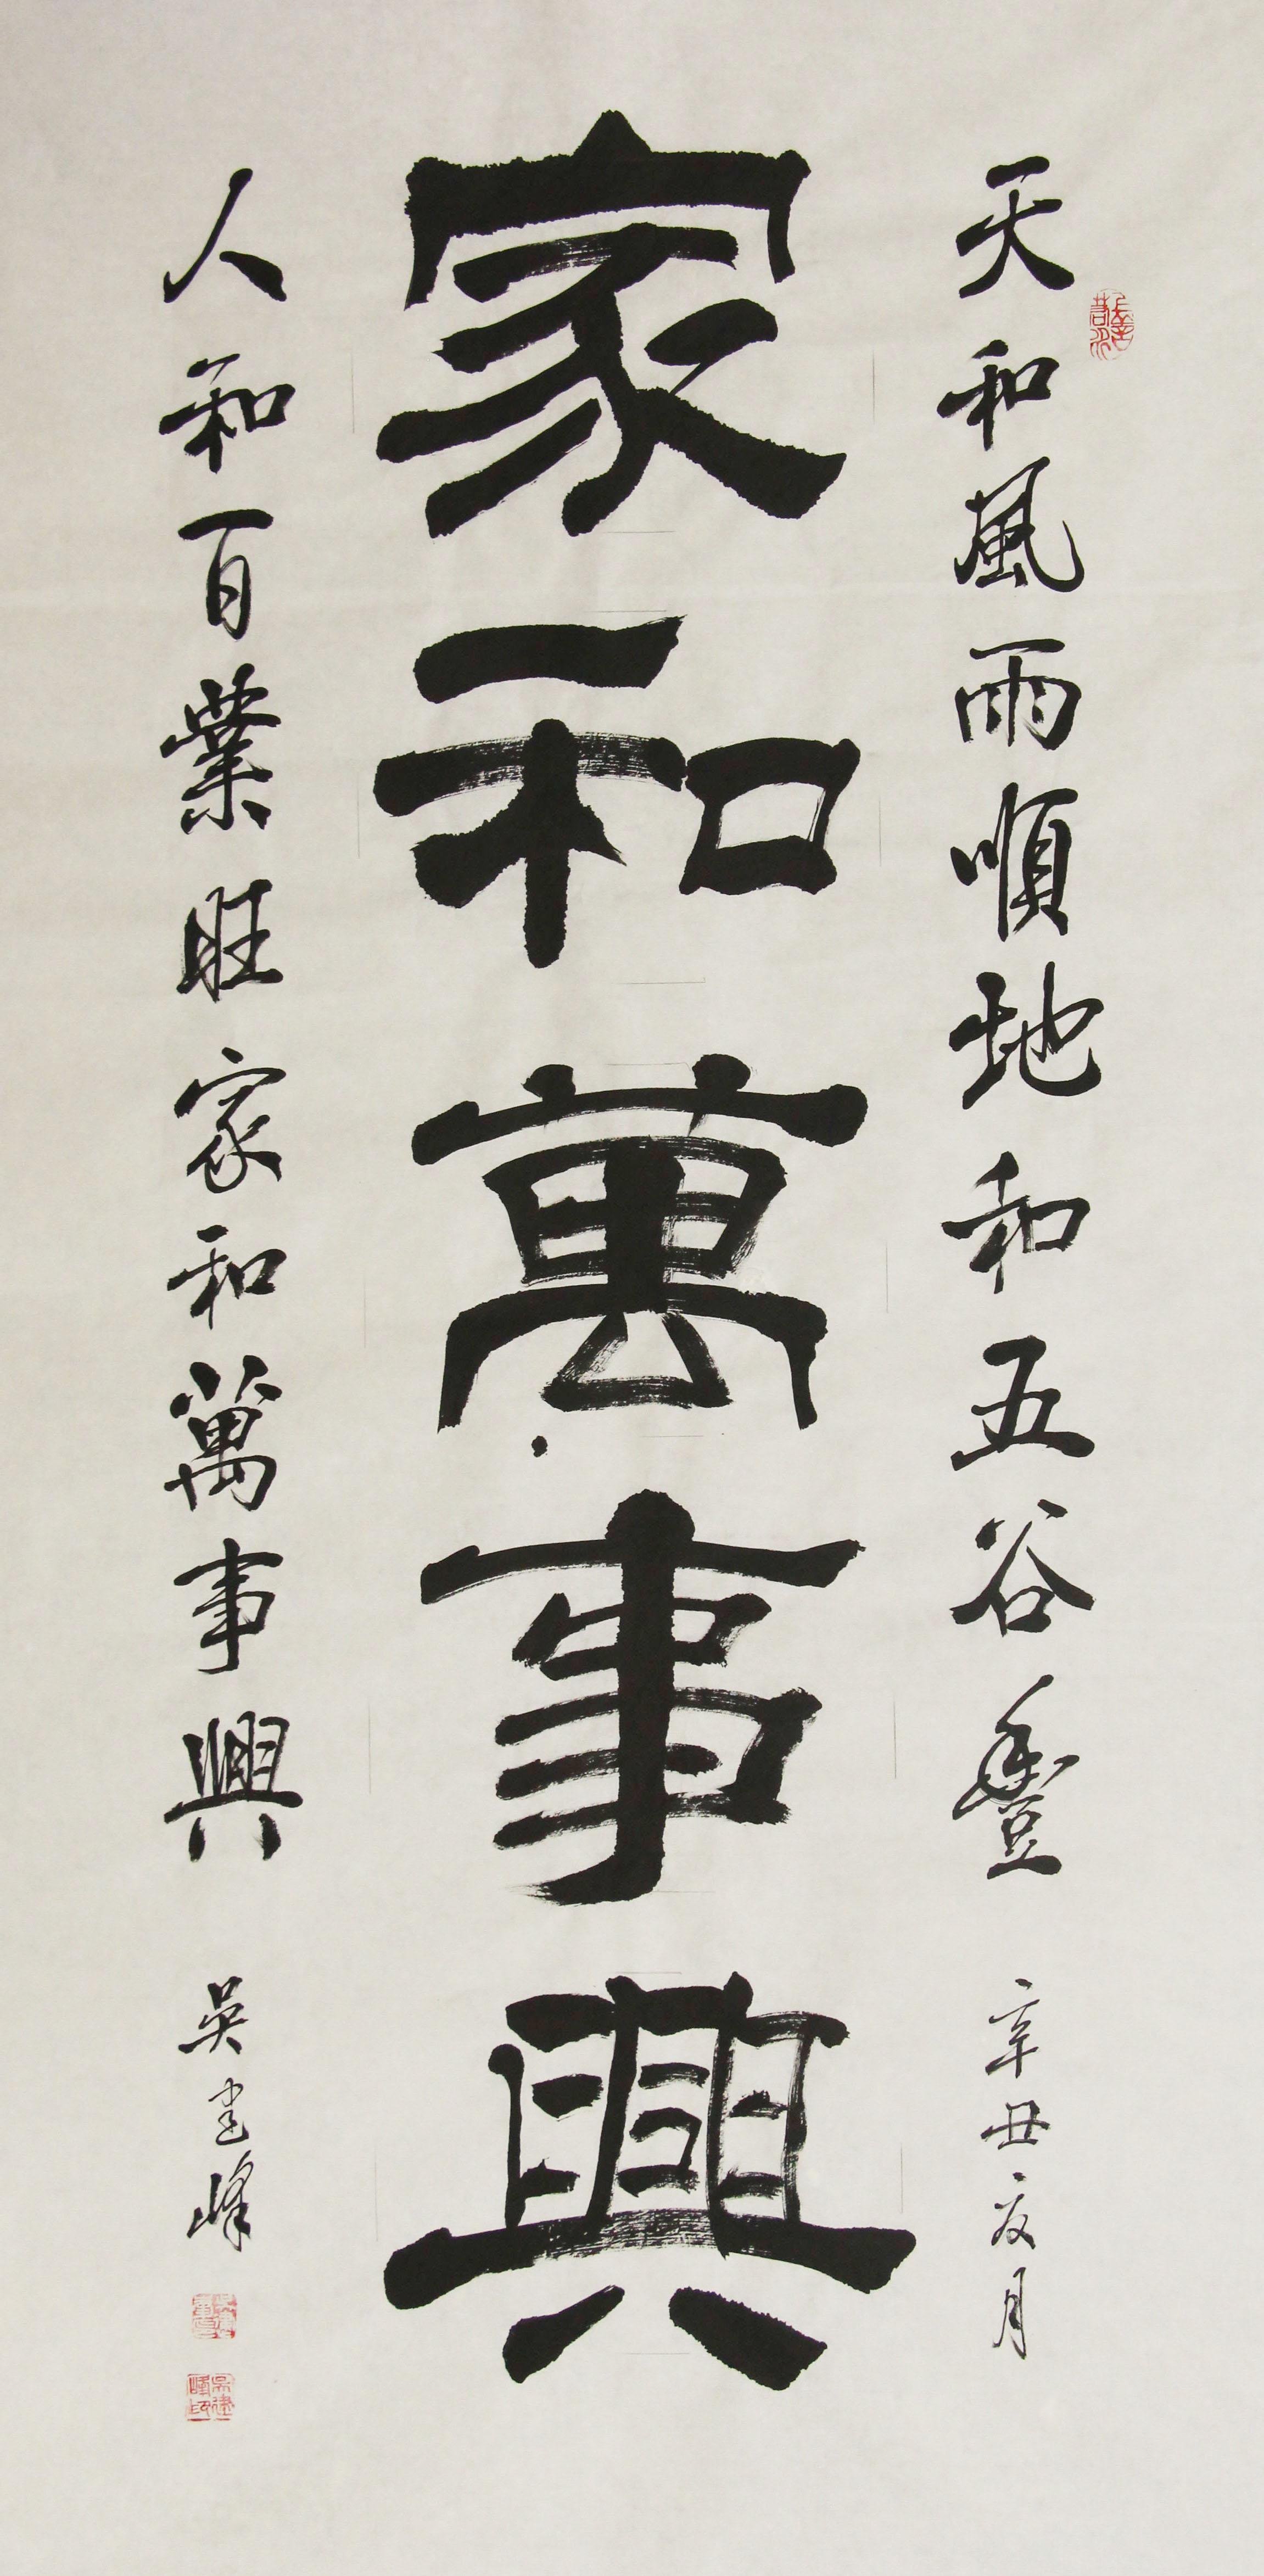 天和風雨順地和五谷豐
辛丑夜月
家和萬事興
人和百業旺家和萬事興
吳建峰
吳建峰印